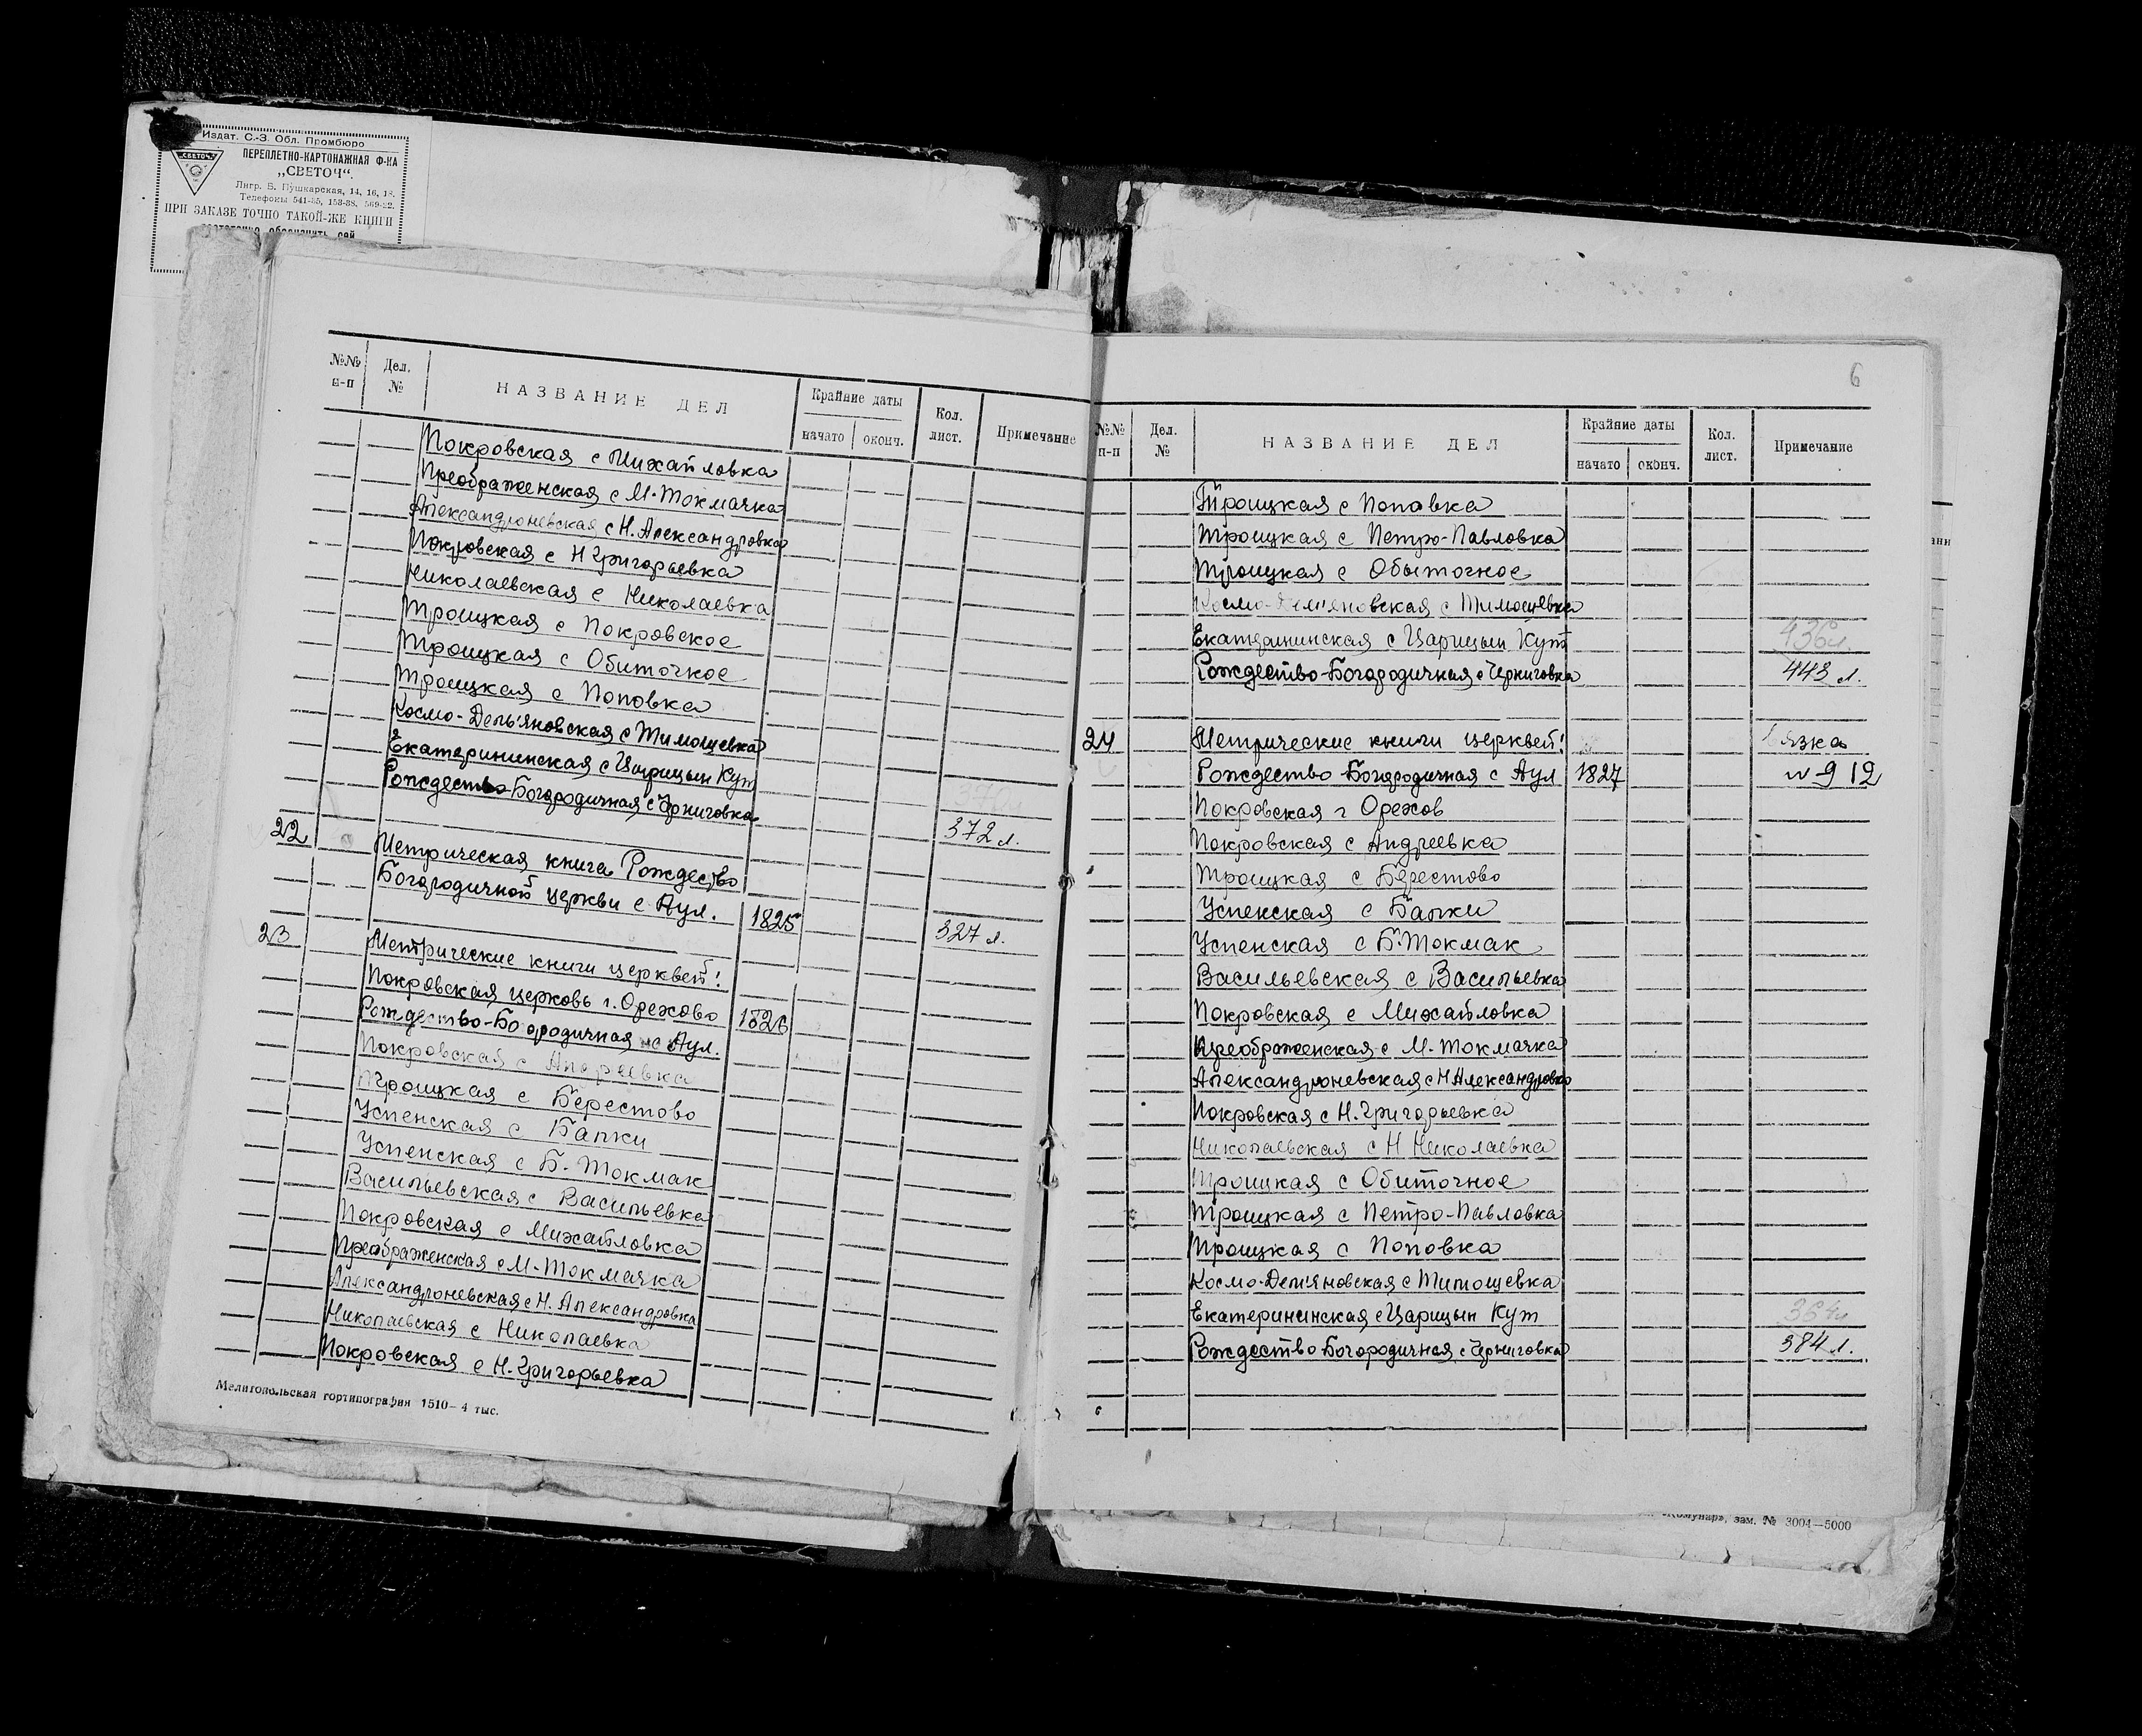 Издат. С.-З. Обл. Промбюро
"СВЕТОЧ"
ПЕРЕПЛЕТНО-КАРТОНАЖНАЯ Ф-КА
„СВЕТОЧ“.
Лнгр. Б. Пушкарская, 14, 16, 18.
Телефоны 541-35, 153-38, 569-22.
ПРИ ЗАКАЗЕ ТОЧНО ТАКОЙ-ЖЕ КНИГИ
№№ п-п Дел. № НАЗВАНИЕ ДЕЛ Крайние даты начато оконч. Кол. лист. Примечание
Покровская с Михайловка
Преображенская с М-Токмачка
Александроневская с Н. Александровка
Покровская с Н Григорьевка
Николаевская с Николаевка
Троицкая с Покровское
Троицкая с Обиточное
Троицкая с Поповка
Космо-Демьяновская с Тимошевка
Екатерининская с Царицын Кут
Рождество-Богородичная с Черниговка
372 л.
22 Метрическая книга Рождество
Богородичной церкви с Аул. 1825
327 л.
23 Метрические книги церквей:
Покровская церковь г. Орехово 1826
Рождество-Богородичная с Аул.
Покровская с Андреевка
Троицкая с Берестово
Успенская с Балки
Успенская с Б. Токмак
Васильевская с Васильевка
Покровская с Михайловка
Преображенская с М-Токмачка
Александроневская с Н. Александровка
Николаевская с Николаевка
Покровская с Н. Григорьевка
Мелитопольская гортипография 1510—4 тыс.
6
№№ п-п Дел. № НАЗВАНИЕ ДЕЛ Крайние даты начато оконч. Кол. лист. Примечание
Троицкая с Поповка
Троицкая с Петро-Павловка
Троицкая с Обыточное
Космо-Демьяновская с Тимошевка
Екатерининская с Царицын Кут 436л.
Рождество-Богородичная с Черниговка 443 л.
24 Метрические книги церквей: Вязка
Рождество Богородичная с Аул 1827 № 912
Покровская г Орехов
Покровская с Андреевка
Троицкая с Берестово
Успенская с Балки
Успенская с Б. Токмак
Васильевская с Васильевка
Покровская с Михайловка
Преображенская с М-Токмачка
Александроневская с Н Александровка
Покровская с Н. Григорьевка
Николаевская с Н Николаевка
Троицкая с Обиточное
Троицкая с Петро-Павловка
Троицкая с Поповка
Космо-Демьяновская с Тимошевка
Екатерининская с Царицын Кут 364л
Рождество Богородичная с Черниговка 384 л.
зам. № 3004—5000